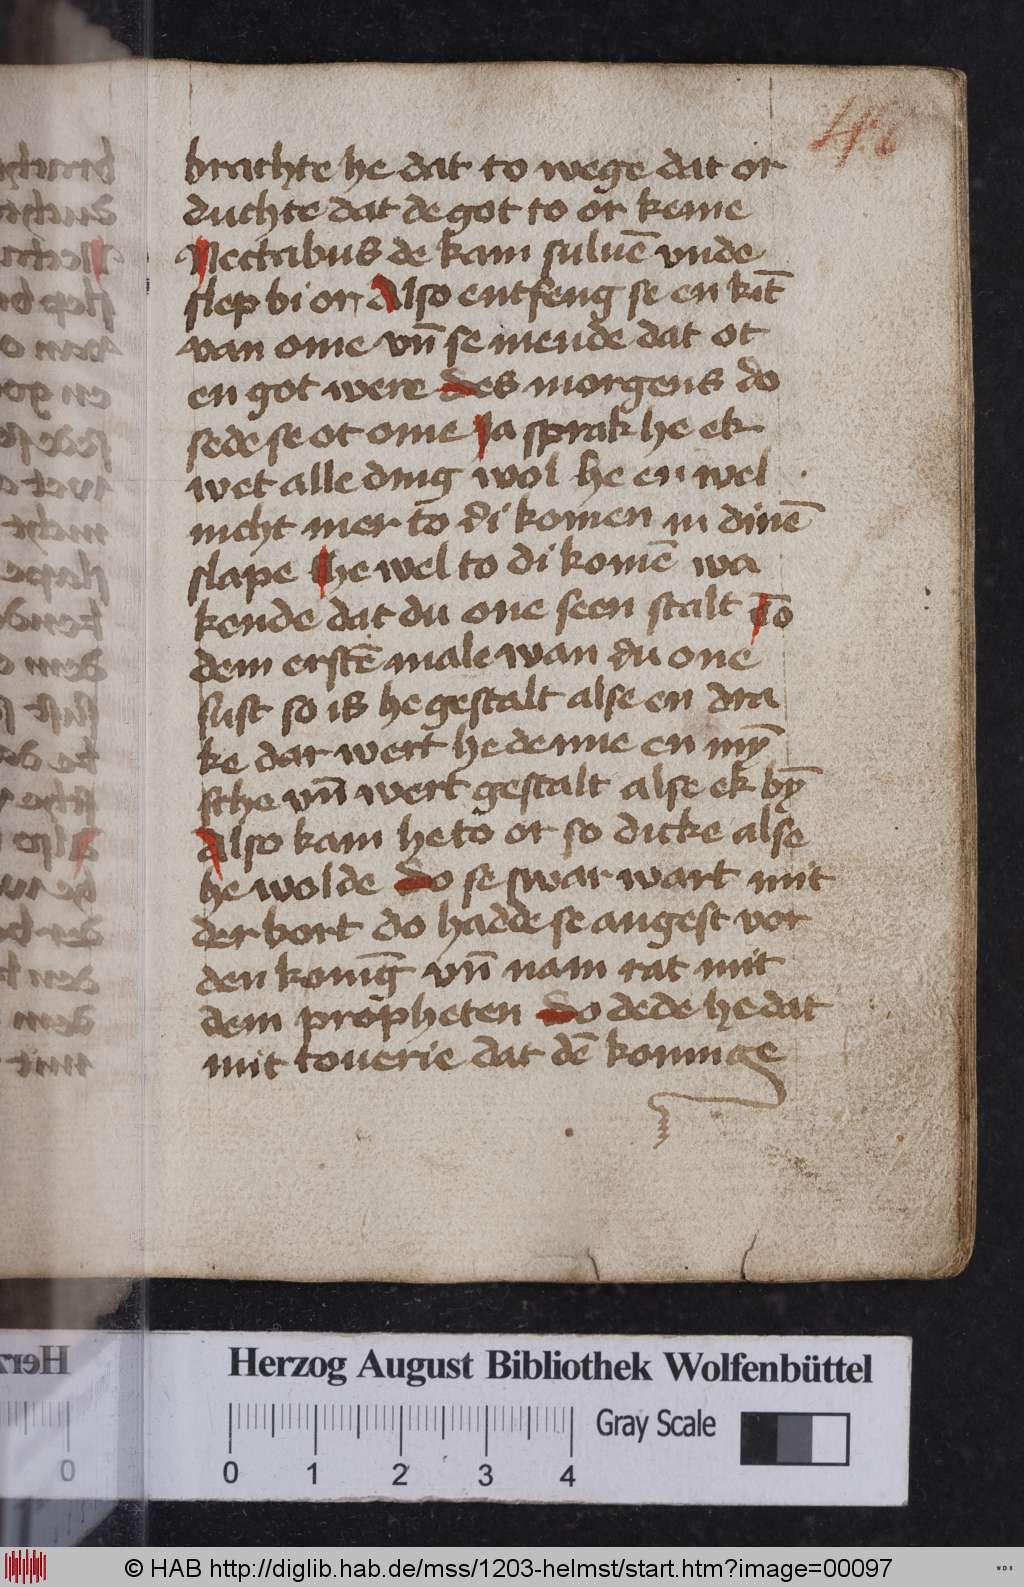 46
brachte he dat to wege dat or
duchte dat de got to or keme
Nectabus de kam suluē vnde
slep bi or Also entfeng se en kīt
van ome vn̄ se mende dat ot
en got were des morgens do
sede se ot ome Ja sprak he ek
wet alle ding wol he en wel
nicht mer to di komen in dinē
slape he wel to di komē wa
kende dat du one seen scalt To
dem erstē male wan du one
sust so is he gestalt alse en dra
ke dar wert he denne en mȳ
sche vn̄ wert gestalt alse ek bȳ
Also kam he to or so dicke alse
he wolde do se swar wart mit
der bort do hadde se angest vor
den konīg vn̄ nam rat mit
dem propheten do dede he dat
mit touerie dat dē koninge
Herzog August Bibliothek Wolfenbüttel
Gray Scale
0 1 2 3 4
© HAB http://diglib.hab.de/mss/1203-helmst/start.htm?image=00097